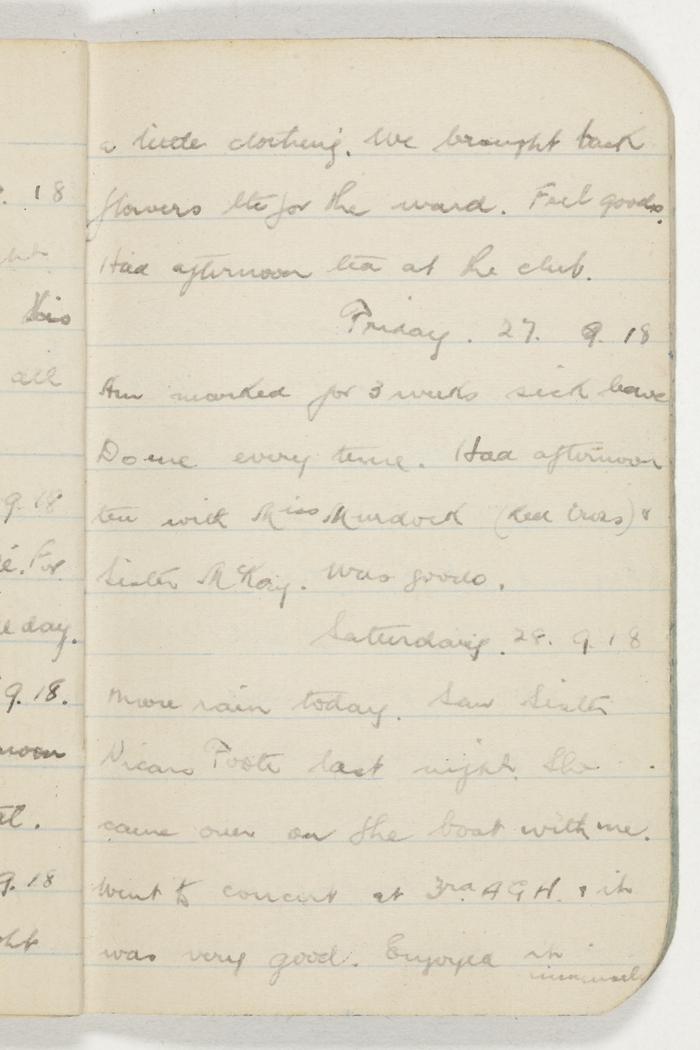 a little clothing. We brought back
flowers etc for the ward. Feel goodo.
Had afternoon tea at the club.
Friday. 27. 9. 18
Am marked for 3 weeks sick leave
Do me every time. Had afternoon
tea with Miss Murdock (Red Cross) &
Sister McKay. Was goodo.
Saturday. 28. 9. 18
More rain today. Saw Sister
Foote last night. She
came over on the boat with me.
Went to concert at 3rd A G H. & it
was very good. Enjoyed it
immensely
. 18
this
all
9. 18
For
day.
9. 18.
noon
9. 18